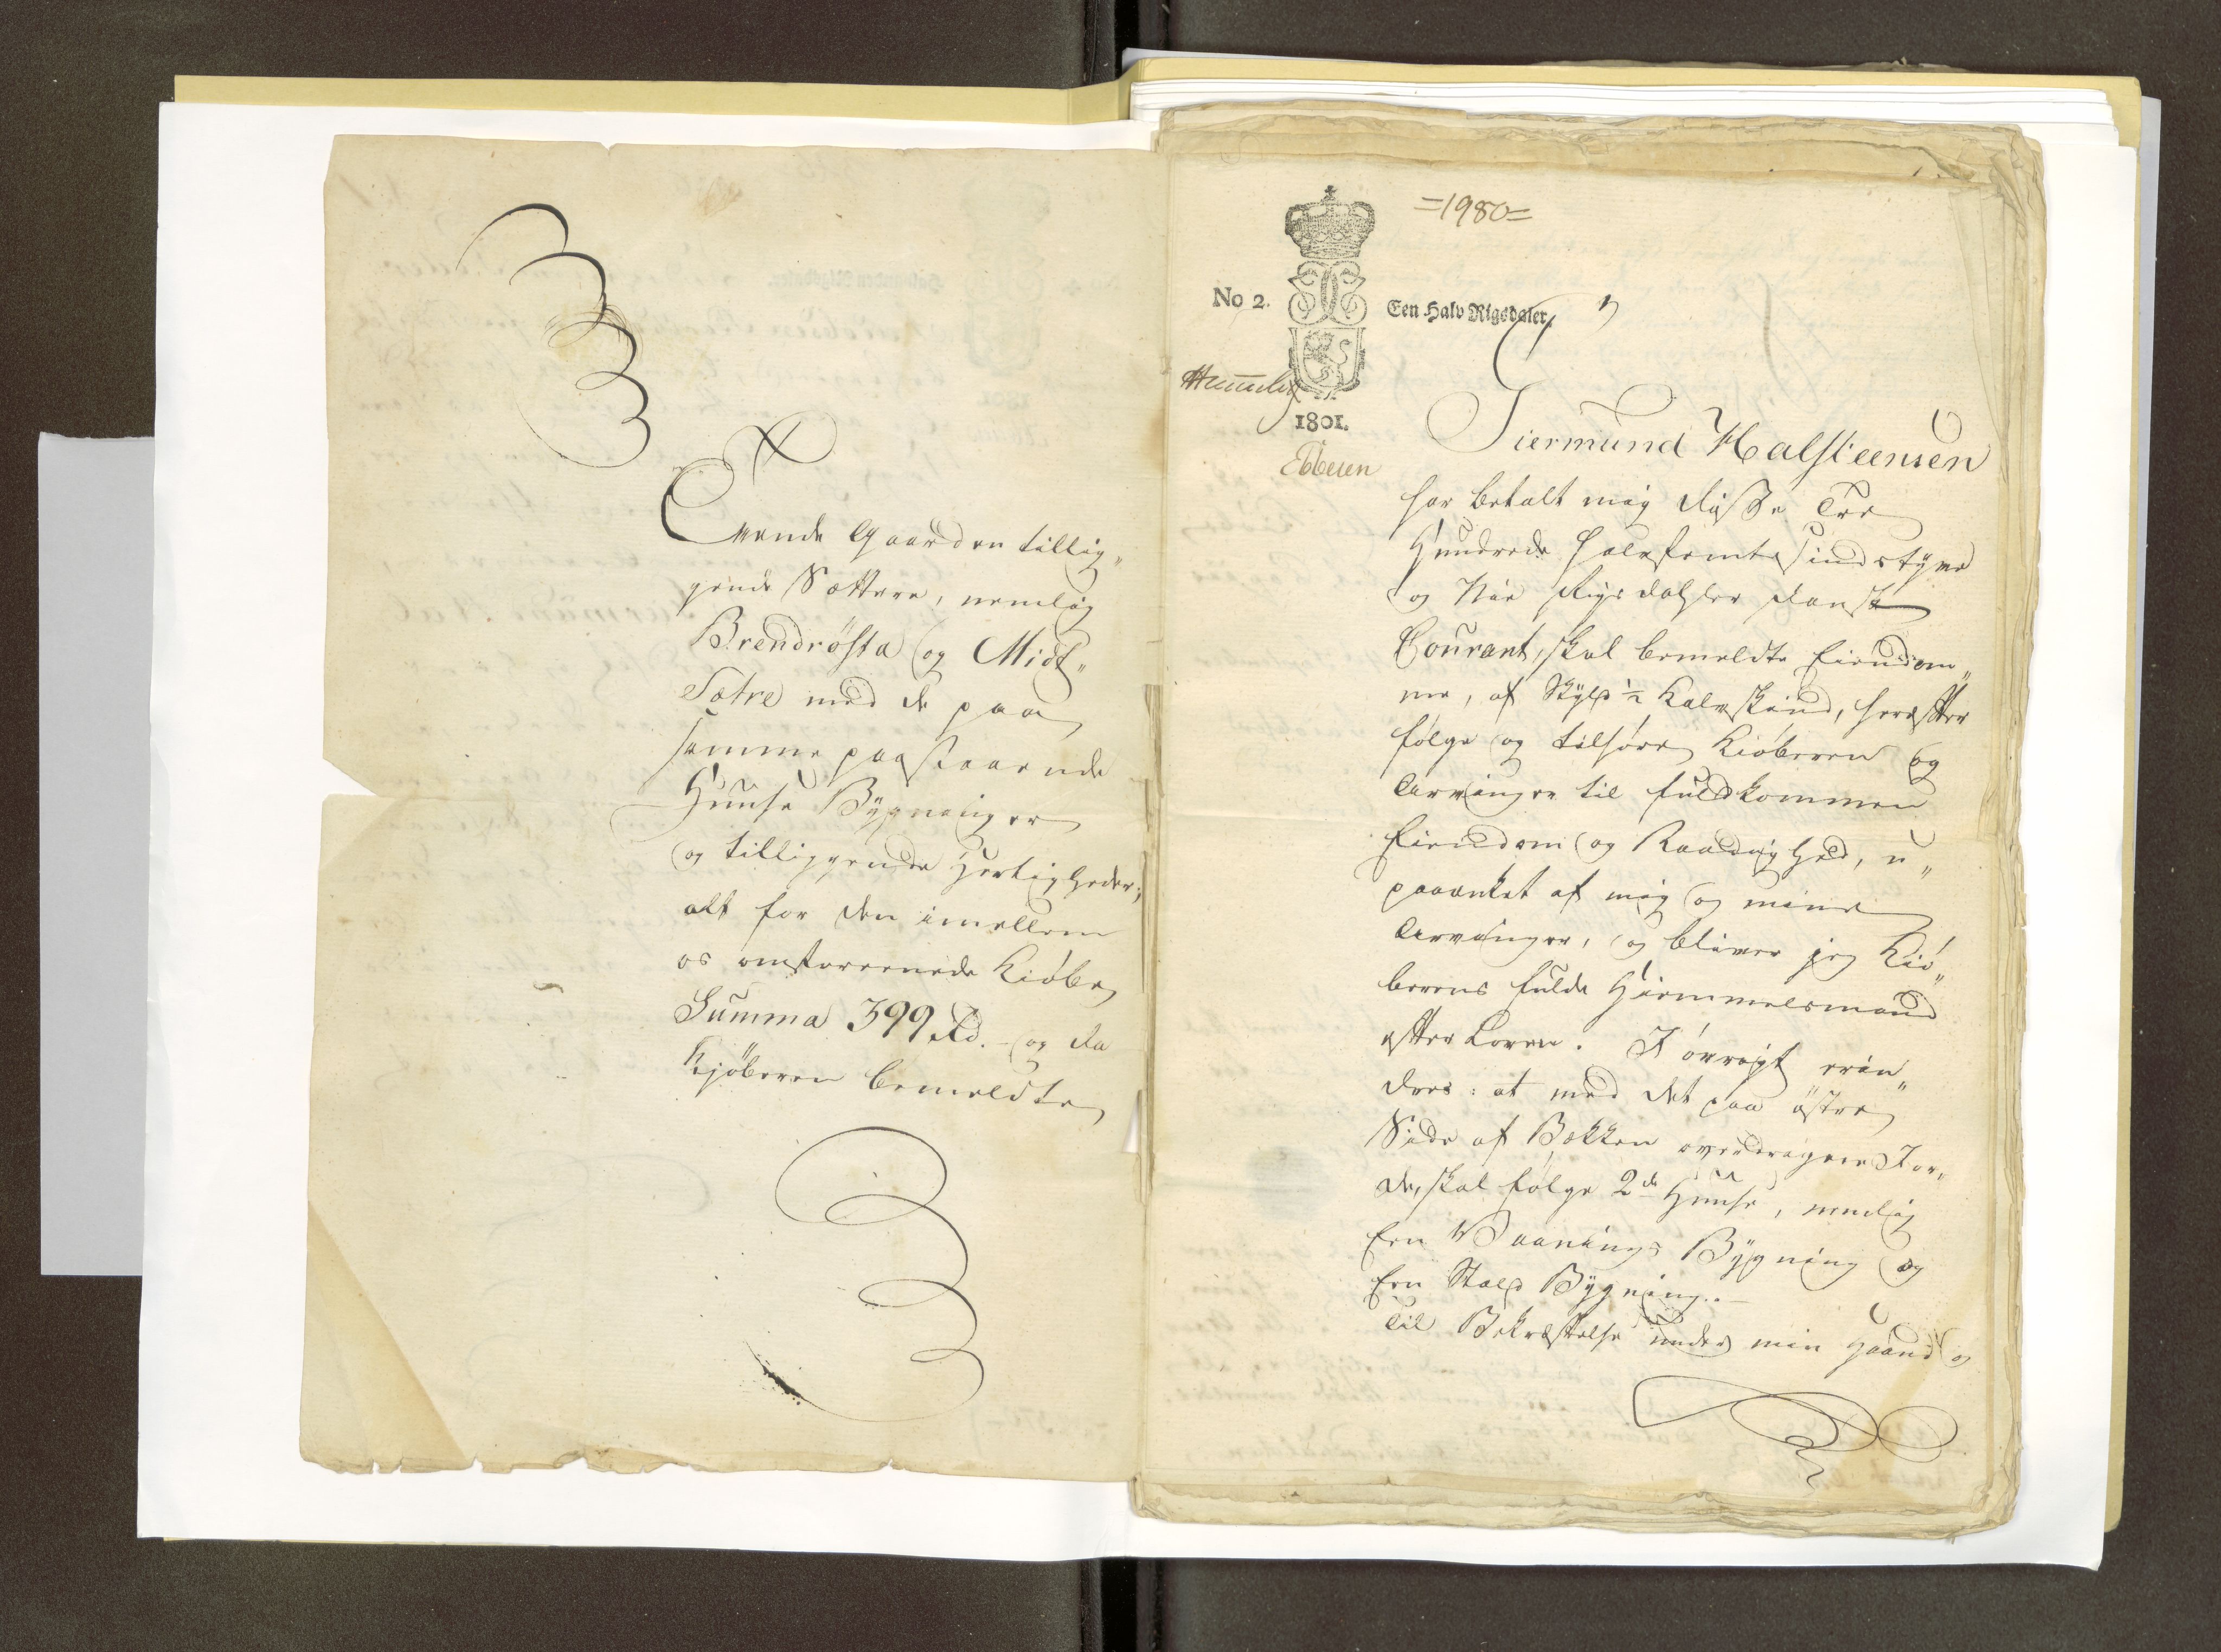 ænde Gaarden tillig„
gende Sættere, nemlig
Brendrösta og Midt„
Sætre med de paa
samme paastaaende
Huuse Bÿgninger
og tilliggende Hærligheder;
alt for den imellem
os omforeenede Kiöbe
Summa 399 rd. – og da
Kjöberen bemeldte
=1980=
No 2.
Een Halv Rigsdaler.
1801.
Ebbesen
Giermund Halsteensen
har betalt mig disse Tre
Hundrede Halvfemtesindstÿve
og Nie Rigsdahler dansk
Courant, skal bemeldte Eiendom„
me, af Skÿld ½ Kalvskind, herefter
fölge og tilhöre Kiöberen og
Arvinger til fuldkommen
Eiendom og Raadighed, u„
paaanket af mig og mine
Arvinger, og bliver jeg Kiö„
berens fulde Hiemmelsmand
efter Loven. I övrigt erin„
dres: at med det paa östre
Side af Bekken overdragne Jor„
de, skal fölge 2de Huuse, nemlig
Een Vaanings Bÿgning og
Een Stald Bÿgning. –
Til Bekræftelse under min Haand og